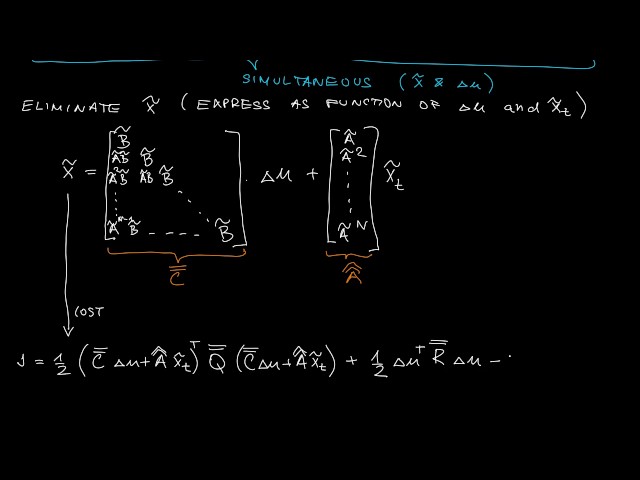 SIMULTANEOUS ( X̃ & Δu )
ELIMINATE X̃ ( EXPRESS AS FUNCTION OF Δu and x̃_t )
X̃ = [ B̃ ; ÃB̃ B̃ ; Ã²B̃ ÃB̃ B̃ ; Ã^{N-1} B̃ ---- B̃ ] · Δu + [ Ã ; Ã² ; Ã^N ] x̃_t
C̿ Â̂
COST
J = 1/2 ( C̿ Δu + Â̂ x̃_t )^T Q̿ ( C̿ Δu + Â̂ x̃_t ) + 1/2 Δu^T R̿ Δu - ·